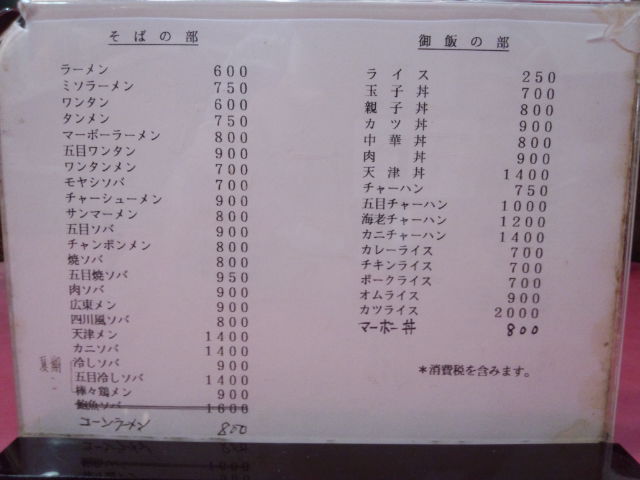 そばの部
ラーメン 600
ミソラーメン 750
ワンタン 600
タンメン 750
マーボーラーメン 800
五目ワンタン 900
ワンタンメン 700
モヤシソバ 700
チャーシューメン 900
サンマーメン 800
五目ソバ 900
チャンポンメン 800
焼ソバ 800
五目焼ソバ 950
肉ソバ 900
広東メン 900
四川風ソバ 800
天津メン 1400
カニソバ 1400
冷しソバ 900
五目冷しソバ 1400
棒々鶏メン 900
鮑魚ソバ 1600
コーンラーメン 800
御飯の部
ライス 250
玉子丼 700
親子丼 800
カツ丼 900
中華丼 800
肉丼 900
天津丼 1400
チャーハン 750
五目チャーハン 1000
海老チャーハン 1200
カニチャーハン 1400
カレーライス 700
チキンライス 700
ポークライス 700
オムライス 900
カツライス 2000
マーボー丼 800
＊消費税を含みます。